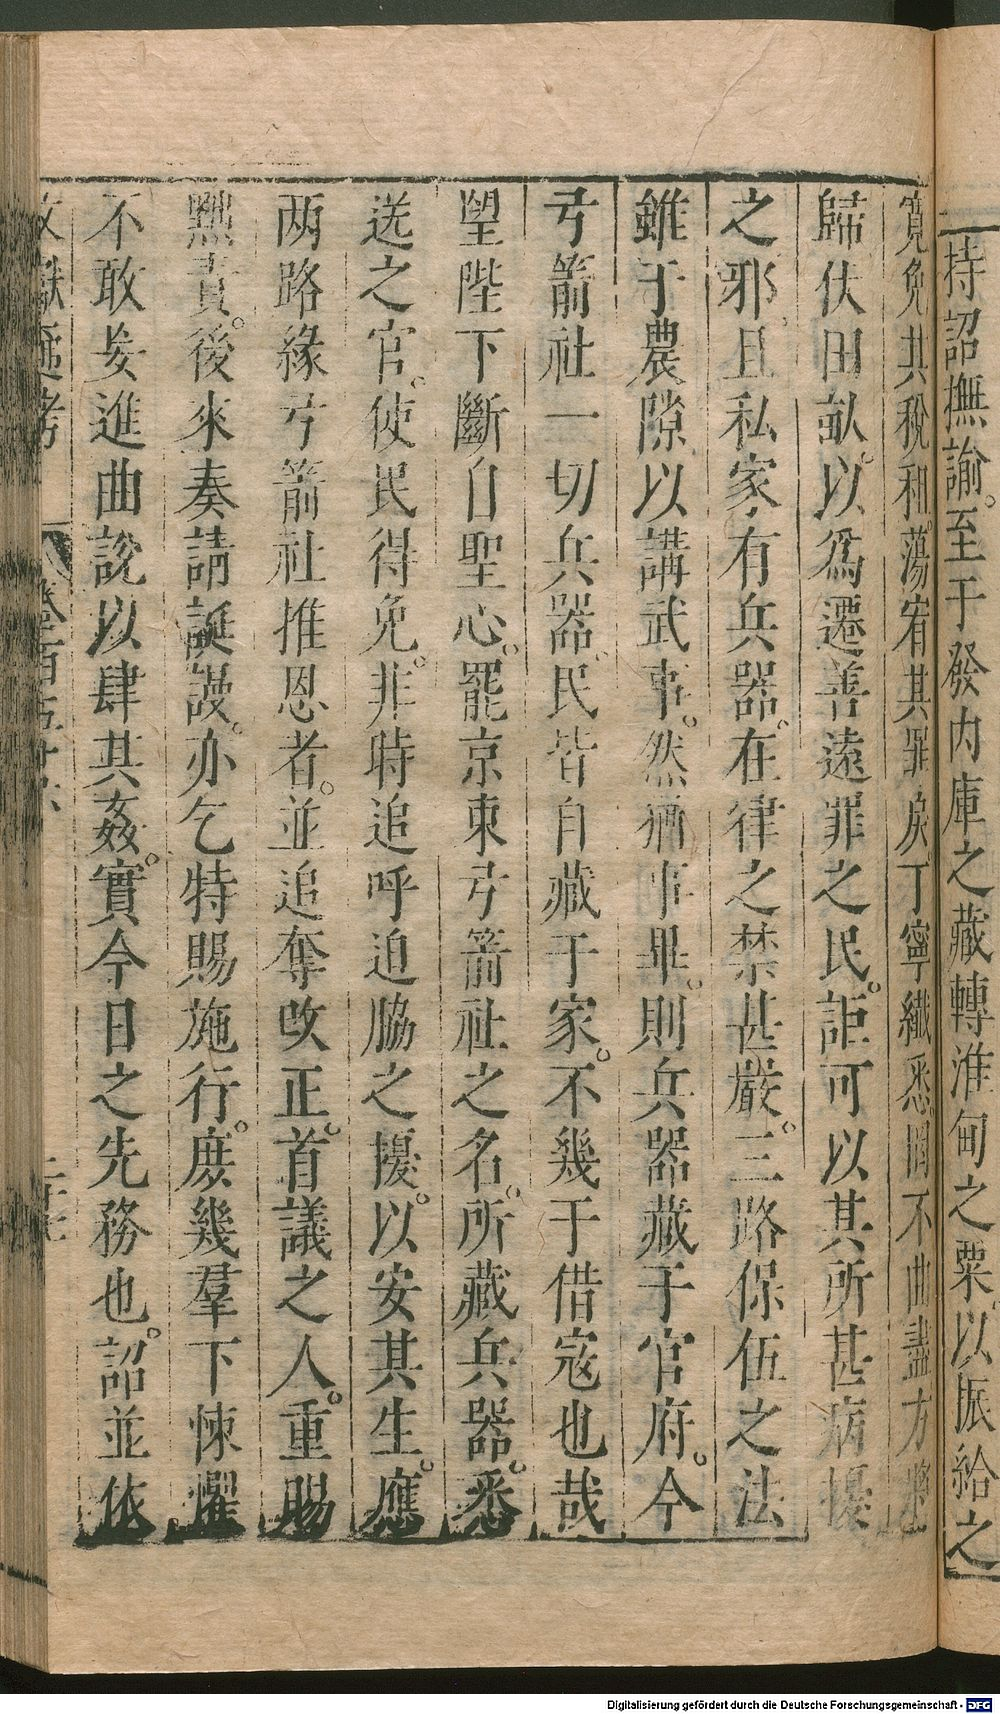 持詔撫諭。至于發内庫之藏轉淮甸之粟。以振給之
寬免其稅和。蕩宥其罪戾丁寧纖悉。罔不曲盡方將
歸伏田畝。以爲遷善遠罪之民。詎可以其所甚病擾
之邪。且私家有兵器。在律之禁甚嚴。三路保伍之法
雖于農隙以講武事。然猶事畢。則兵器藏于官府。今
弓箭社一切兵器。民皆自藏于家。不幾于借寇也哉
望陛下斷自聖心。罷京東弓箭社之名。所藏兵器。悉
送之官。使民得免。非時追呼迫脇之擾。以安其生。應
两路緣弓箭社推恩者。並追奪改正。首議之人。重賜
黜責。後來奏請誕謾。亦乞特賜施行。庶幾羣下悚懼
不敢妄進曲說以肆其姦。實今日之先務也。詔並依
文獻通考